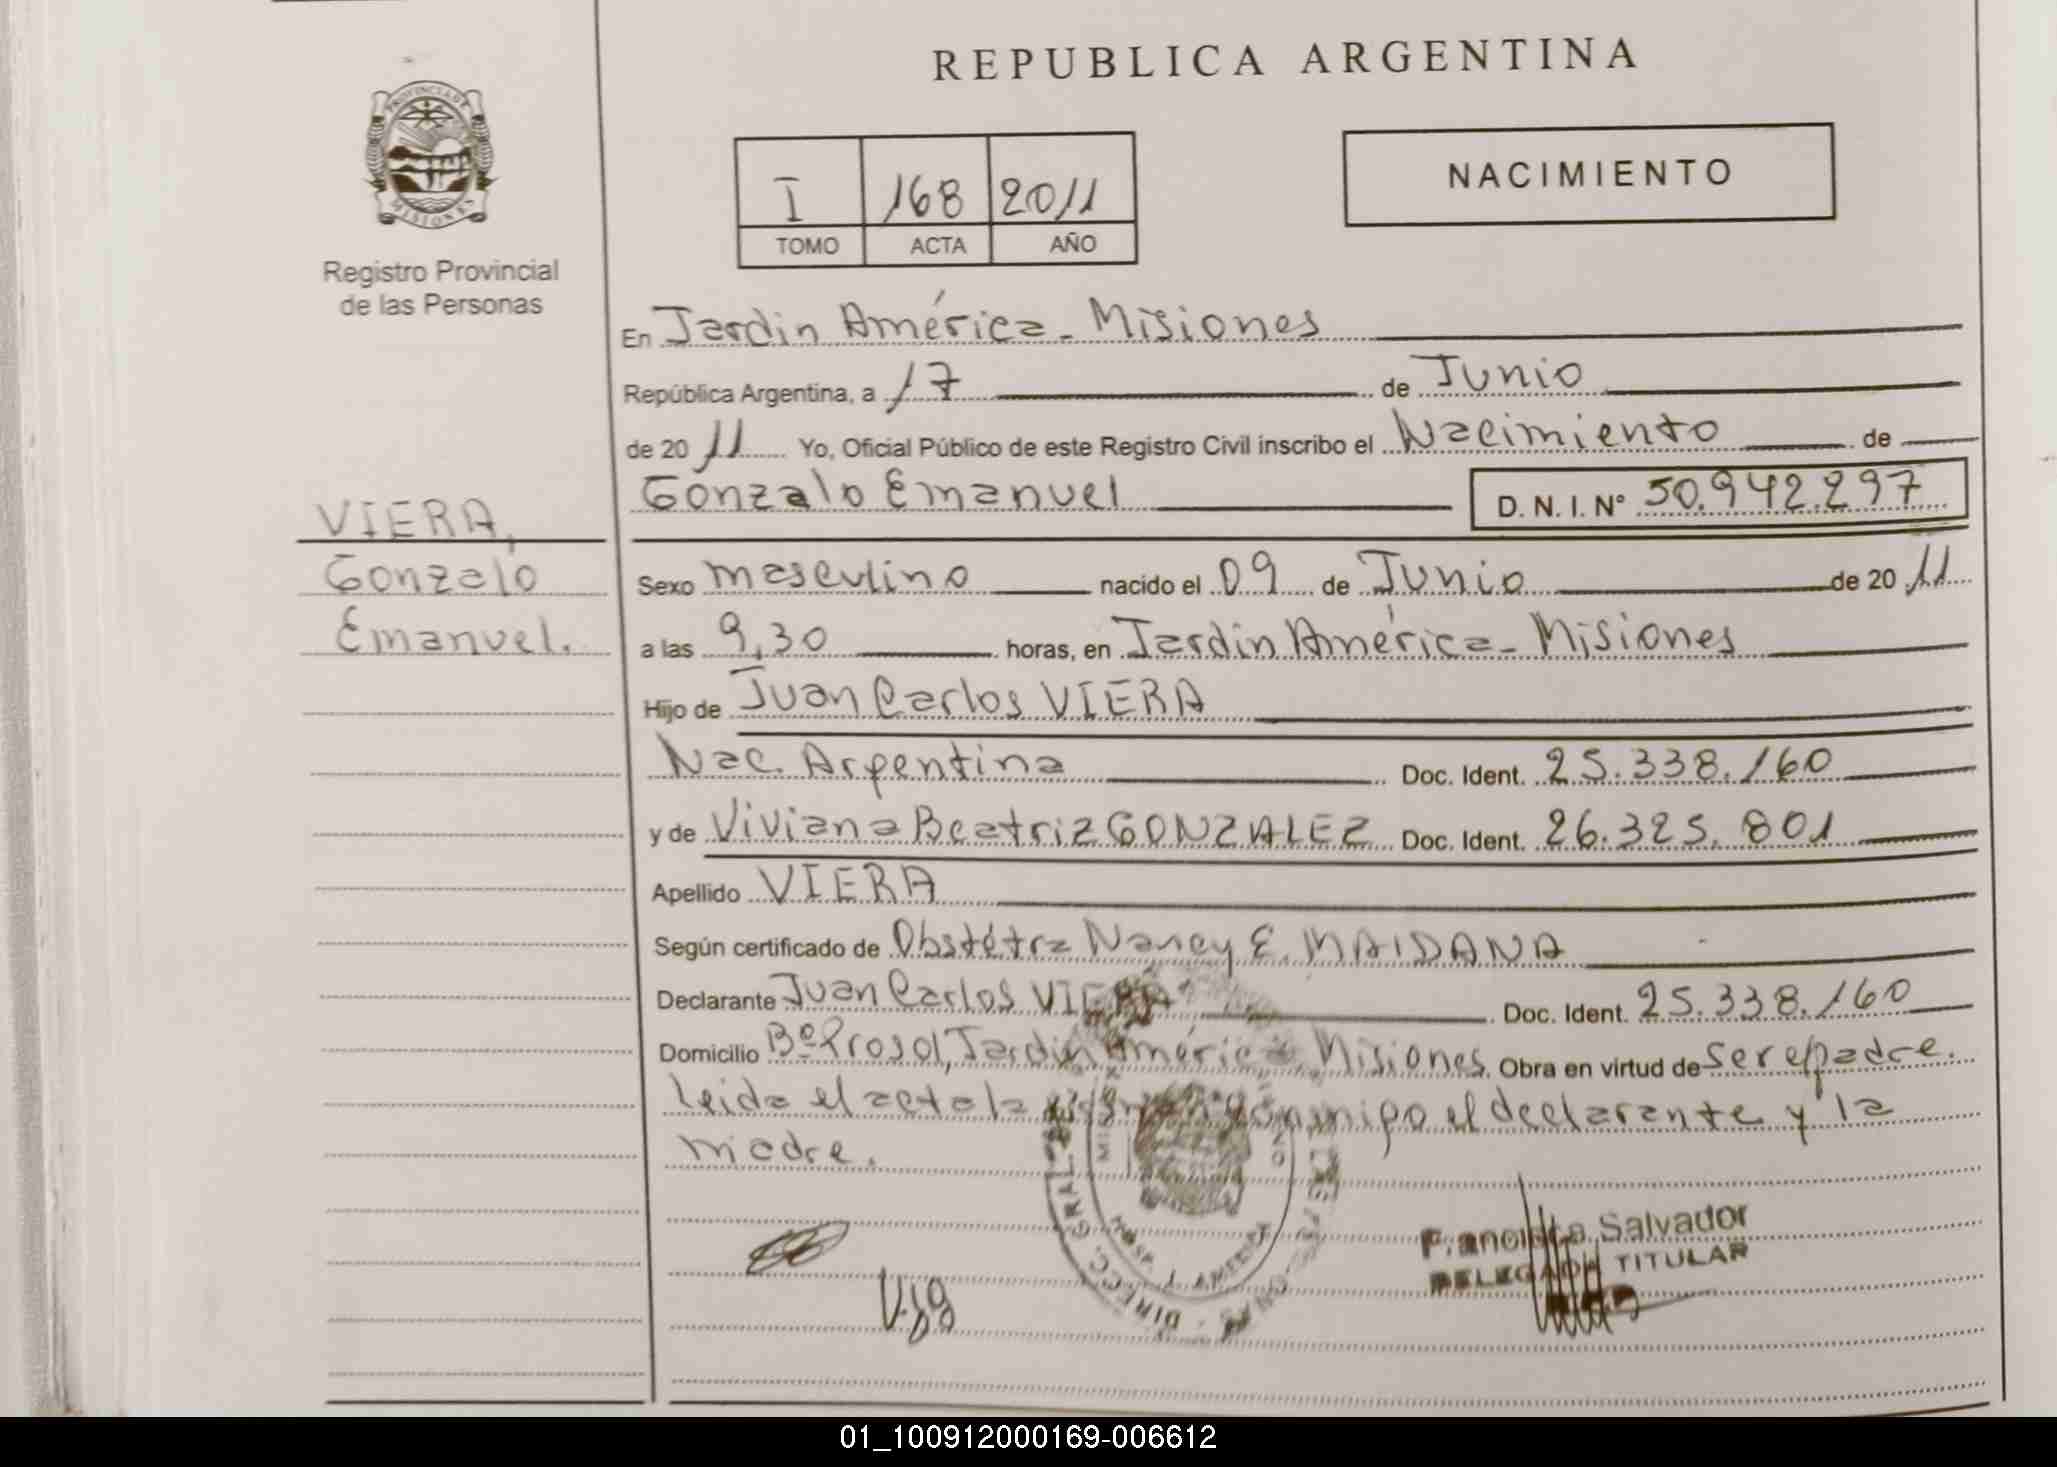 REPUBLICA ARGENTINA
PROVINCIA DE
MISIONES
Registro Provincial
de las Personas
I 168 2011
TOMO ACTA AÑO
NACIMIENTO
En Jardin América - Misiones
República Argentina, a 17 de Junio
de 20 11 Yo, Oficial Público de este Registro Civil inscribo el Nacimiento de
Gonzalo Emanuel D. N. I. Nº 50.942.297
VIERA,
Gonzalo
Emanuel.
Sexo masculino nacido el 09 de Junio de 20 11
a las 9,30 horas, en Jardin América - Misiones
Hijo de Juan Carlos VIERA
Nac. Argentina Doc. Ident. 25.338.160
y de Viviana Beatriz GONZALEZ Doc. Ident. 26.325.801
Apellido VIERA
Según certificado de Obstétra Nancy E. MAIDANA
Declarante Juan Carlos VIERA Doc. Ident. 25.338.160
Domicilio Bº Prosol, Jardin América Misiones. Obra en virtud de ser el padre.
Leida el acta la conmigo el declarante y la
madre.
Francisca Salvador
DELEGADA TITULAR
01_100912000169-006612